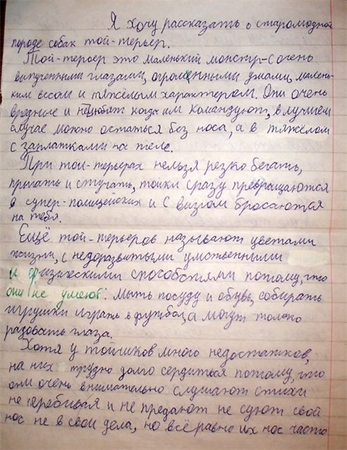 Я хочу рассказать о старомодной
породе собак той-терьер.
Той-терьер это маленький монстр с очень
выпученными глазами, огромными ушами, малень-
ким весом и тяжёлым характером. Они очень
вредные и не любят когда им командуют, в лучшем
случае можно остаться без носа, а в тяжёлом
с заплатками на теле.
При той-терьерах нельзя резко бегать,
прыгать и стучать, тойки сразу превращаются
в супер-полицейских и с визгом бросаются
на тебя.
Ещё той-терьеров называют цветами
жизни, с недоразвитыми умственными
и физическими способностями потому, что
они не умеют: мыть посуду и обувь, собирать
игрушки играть в футбол, а могут только
радовать глаза.
Хотя у тойчиков много недостатков,
на них трудно долго сердится потому, что
они очень внимательно слушают стихи
не перебивая и не предают не суют свой
нос не в свои дела, но всё равно их нос часто